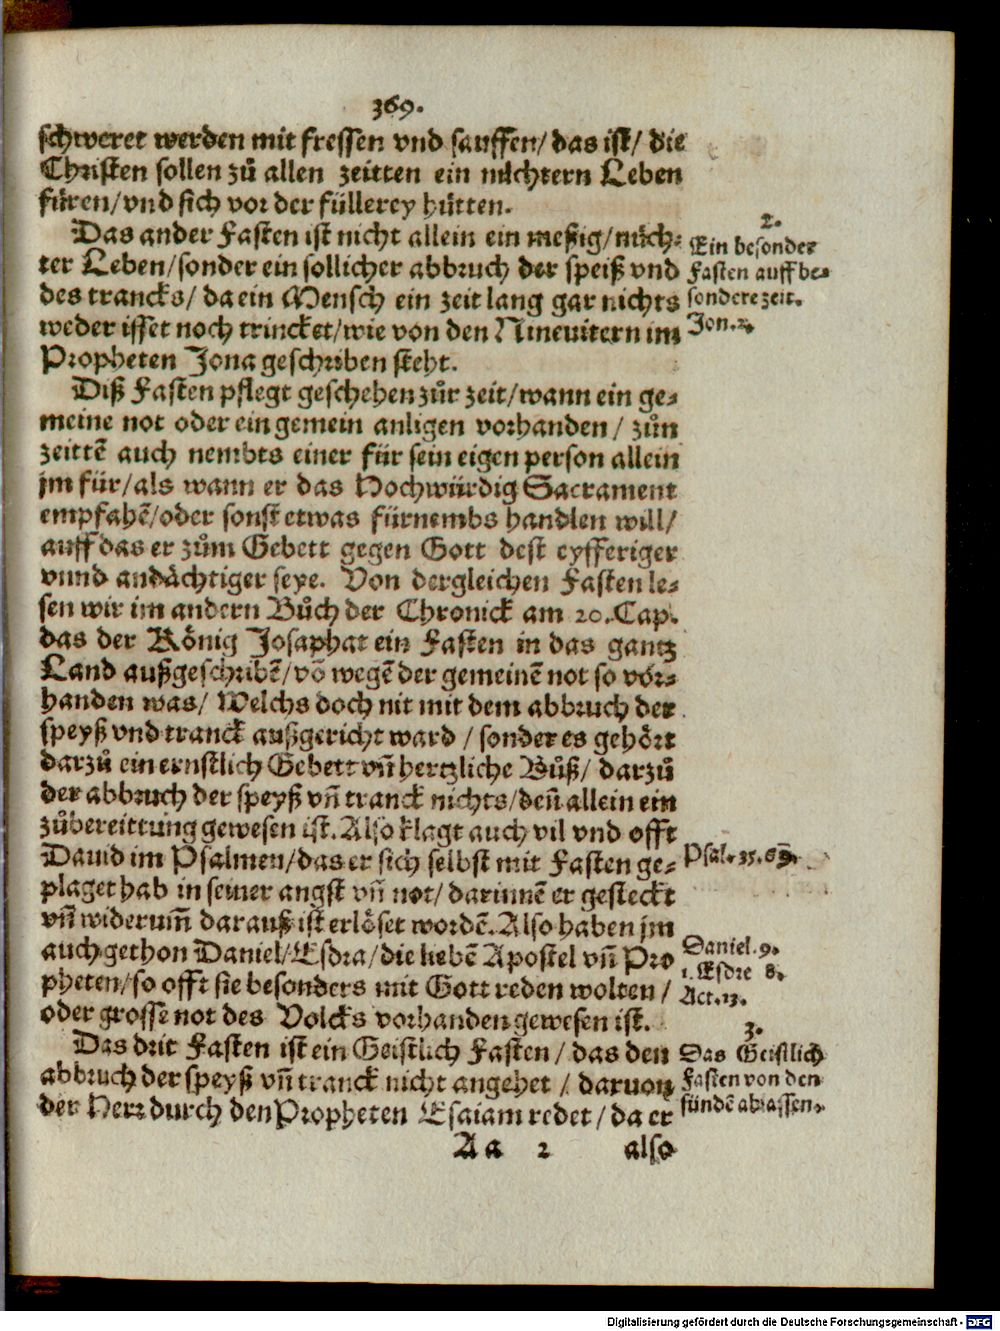 369.
schweret werden mit fressen vnd sauffen/ das ist/ die
Christen sollen zů allen zeitten ein nüchtern Leben
füren/ vnd sich vor der füllerey hütten.
Das ander Fasten ist nicht allein ein meßig/ nüch-
ter Leben/ sonder ein sollicher abbruch der speiß vnd
des trancks/ da ein Mensch ein zeit lang gar nichts
weder isset noch trincket/ wie von den Nineuitern im
Propheten Jona geschriben steht.
2.
Ein besonder
Fasten auff be-
sondere zeit.
Jon. 3.
Diß Fasten pflegt geschehen zůr zeit/ wann ein ge-
meine not oder ein gemein anligen vorhanden/ zůn
zeittē auch nembts einer für sein eigen person allein
jm für/ als wann er das Hochwürdig Sacrament
empfahē/ oder sonst etwas fürnembs handlen will/
auff das er zům Gebett gegen Gott dest eyfferiger
vnnd andächtiger seye. Von dergleichen Fasten le-
sen wir im andern Bůch der Chronick am 20. Cap.
das der König Josaphat ein Fasten in das gantz
Land außgeschribē/ vō wegē der gemeinē not so vor-
handen was/ Welchs doch nit mit dem abbruch der
speyß vnd tranck außgericht ward/ sonder es gehört
darzů ein ernstlich Gebett vn̄ hertzliche Bůß/ darzů
der abbruch der speyß vn̄ tranck nichts/ den̄ allein ein
zůbereittung gewesen ist. Also klagt auch vil vnd offt
Dauid im Psalmen/ das er sich selbst mit Fasten ge-
plaget hab in seiner angst vn̄ not/ darinnē er gesteckt
vn̄ widerum̄ darauß ist erlöset wordē. Also haben jm
auch gethon Daniel/ Esdra/ die liebē Apostel vn̄ Pro
pheten/ so offt sie besonders mit Gott reden wolten/
oder grosse not des Volcks vorhanden gewesen ist.
Psal. 35. 69.
Daniel. 9.
1. Esdre 8.
Act. 13.
Das drit Fasten ist ein Geistlich Fasten/ das den
abbruch der speyß vn̄ tranck nicht angehet/ daruon
der Herr durch den Propheten Esaiam redet/ da er
3.
Das Geistlich
Fasten von den
sündē ablassen.
Aa 2 also
Digitalisierung gefördert durch die Deutsche Forschungsgemeinschaft - DFG